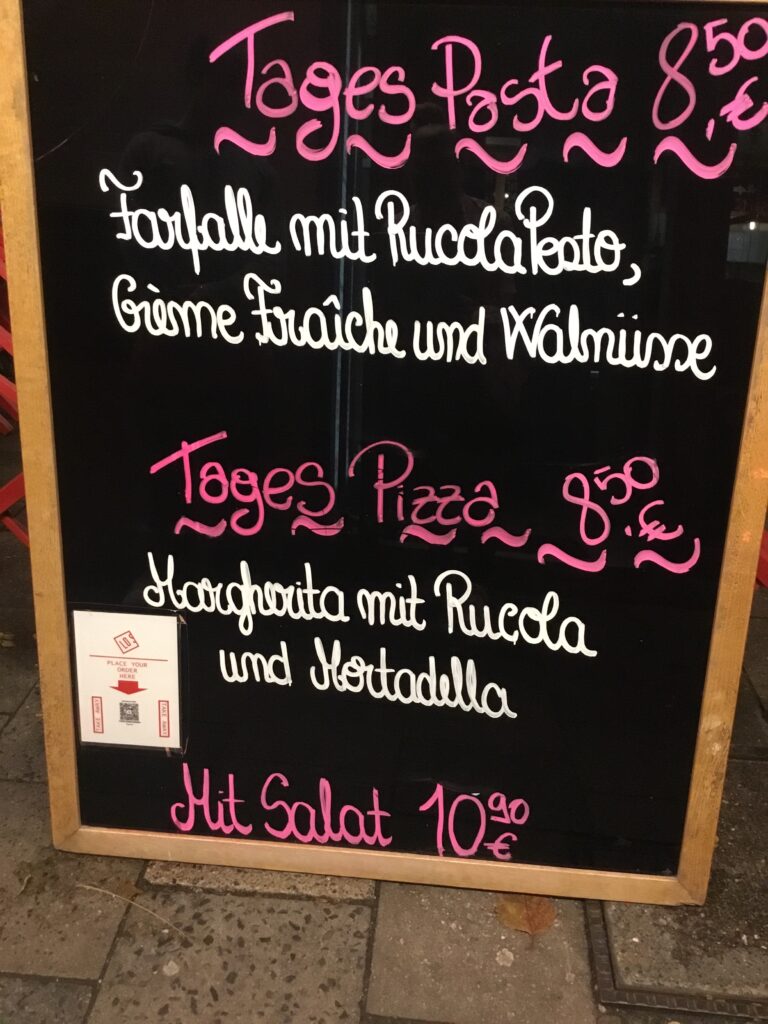 Tages Pasta 8,50 €
Farfalle mit Rucola Pesto,
Crème Fraîche und Walnüsse
Tages Pizza 8.50 €
Margherita mit Rucola
und Mortadella
LO'S
PLACE YOUR
ORDER
HERE
TAKE AWAY
TAKE AWAY
Mit Salat 10 90 €